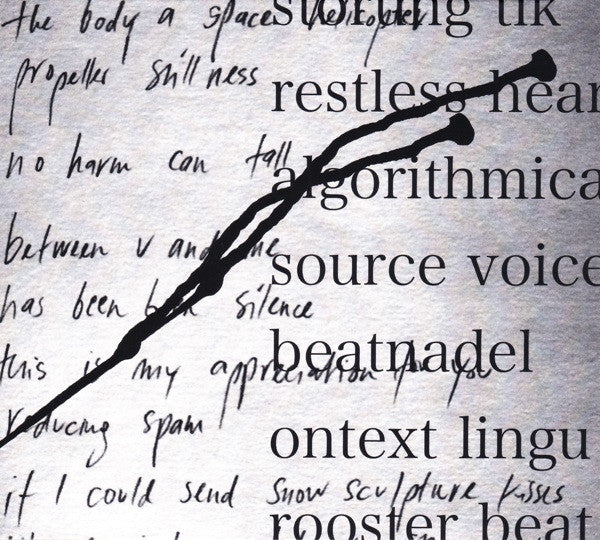 the body a space helicopter
propeller stillness
no harm can fall
between v and me
has been both silence
this is my appreciation for you
reducing spam
if I could send snow sculpture kisses
storung tik
restless hear
algorithmica
source voice
beatnadel
ontext lingu
rooster beat